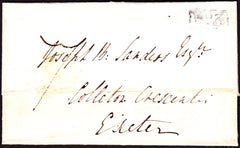 Joseph M. Sanders Esqre
Colleton Crescent
Exeter